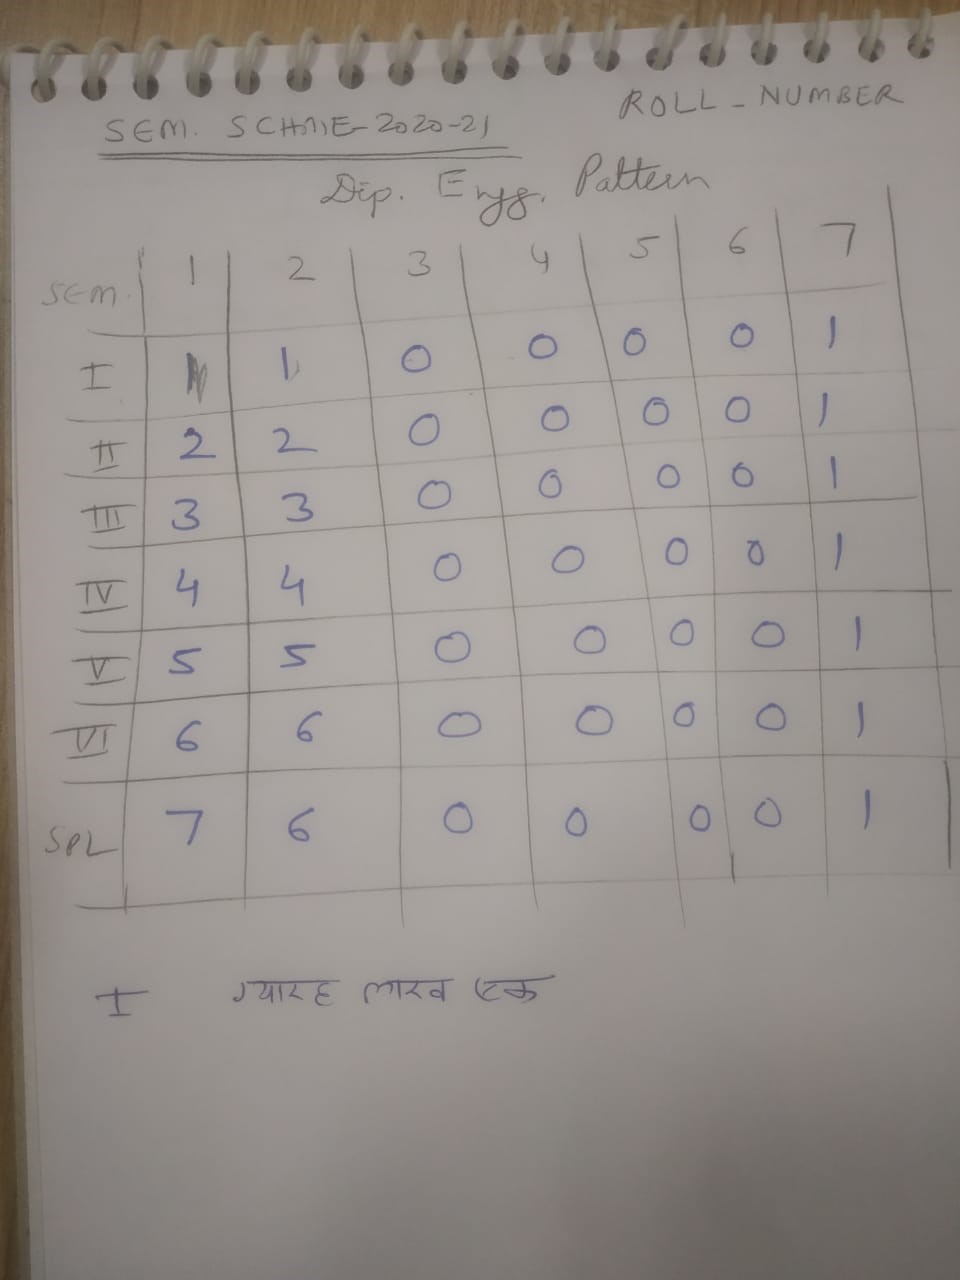 ROLL - NUMBER
SEM. SCHME-2020-21
Dip. Engg. Pattern
SEM. 1 2 3 4 5 6 7
I 1 1 0 0 0 0 1
II 2 2 0 0 0 0 1
III 3 3 0 0 0 0 1
IV 4 4 0 0 0 0 1
V 5 5 0 0 0 0 1
VI 6 6 0 0 0 0 1
SPL 7 6 0 0 0 0 1
I ग्यारह लाख एक